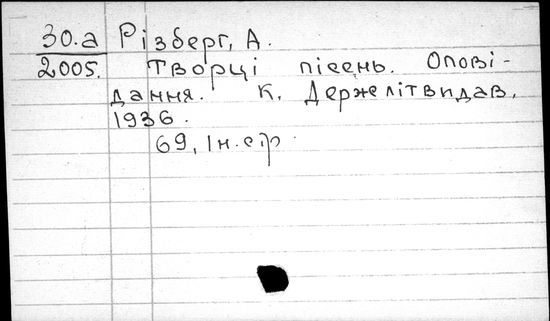 30.а Різберг, А.
2005. Творці пісень. Опові-
дання. К. Держлітвидав,
1936.
69, Ін. с/р.